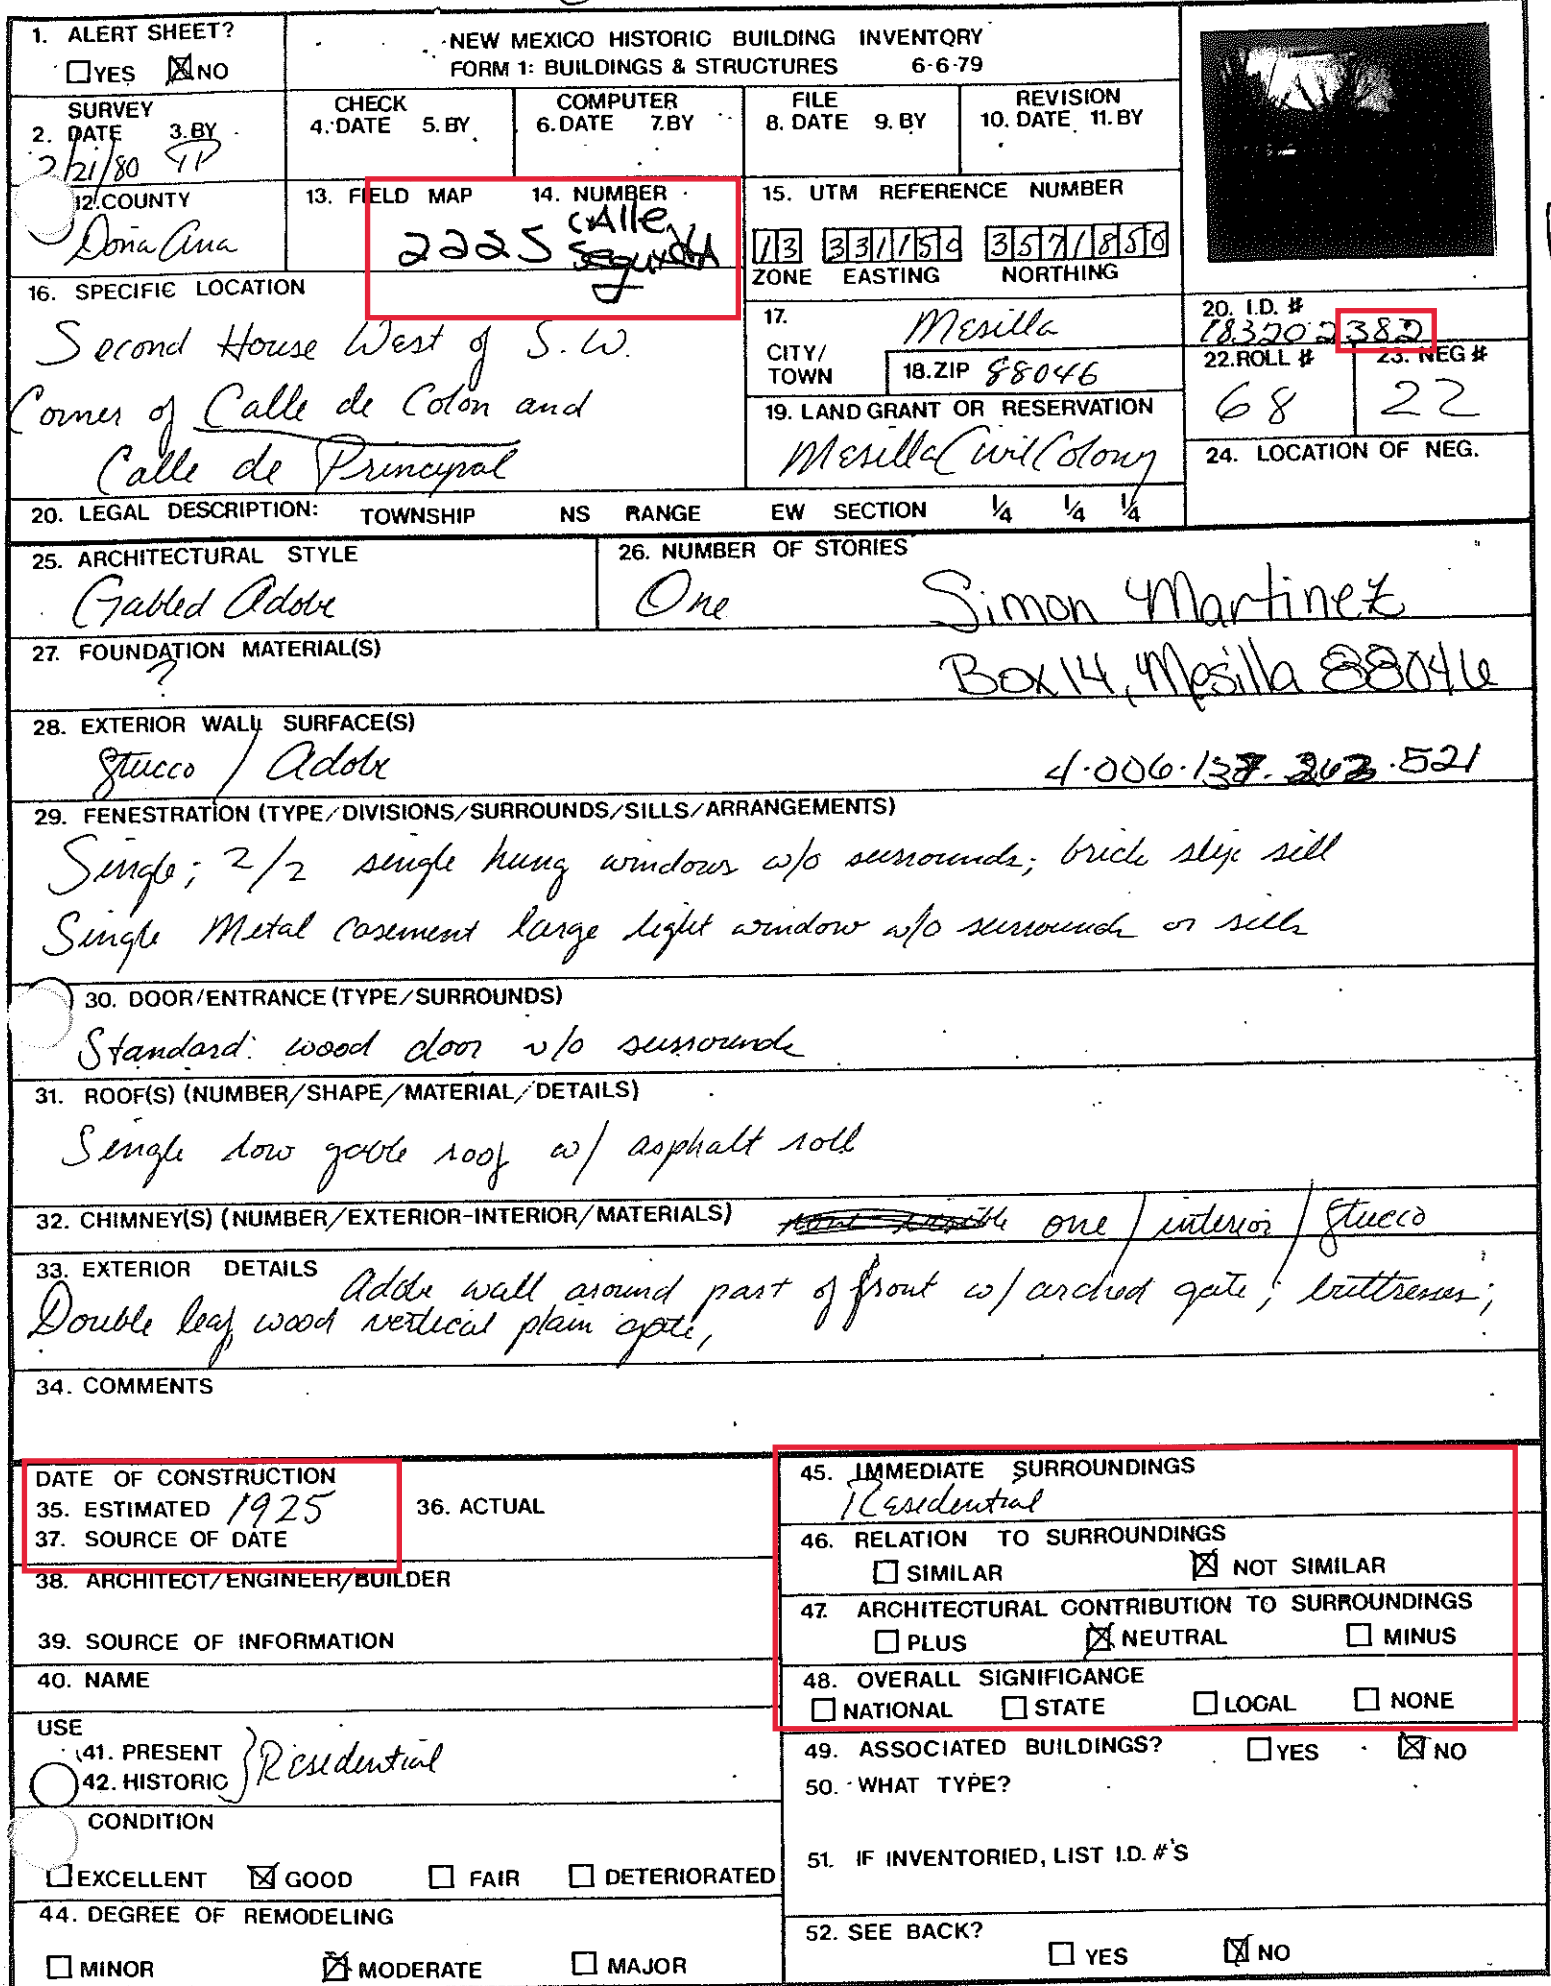 1. ALERT SHEET?
☐ YES ☒ NO
NEW MEXICO HISTORIC BUILDING INVENTORY
FORM 1: BUILDINGS & STRUCTURES 6-6-79
SURVEY
2. DATE 3. BY
2/21/80 TP
CHECK
4. DATE 5. BY
COMPUTER
6. DATE 7. BY
FILE
8. DATE 9. BY
REVISION
10. DATE 11. BY
12. COUNTY
Doña Ana
13. FIELD MAP 14. NUMBER
2225 CAlle
SegundA
15. UTM REFERENCE NUMBER
13 331150 3571850
ZONE EASTING NORTHING
16. SPECIFIC LOCATION
Second House West of S.W.
Corner of Calle de Colon and
Calle de Principal
17. CITY/TOWN
Mesilla
18. ZIP 88046
19. LAND GRANT OR RESERVATION
Mesilla Civil Colony
20. I.D. #
183202382
22. ROLL #
68
23. NEG #
22
24. LOCATION OF NEG.
20. LEGAL DESCRIPTION: TOWNSHIP NS RANGE EW SECTION ¼ ¼ ¼
25. ARCHITECTURAL STYLE
Gabled Adobe
26. NUMBER OF STORIES
One
Simon Martinez
27. FOUNDATION MATERIAL(S)
?
Box 14, Mesilla 88046
28. EXTERIOR WALL SURFACE(S)
Stucco / Adobe
4.006.137. .521
29. FENESTRATION (TYPE/DIVISIONS/SURROUNDS/SILLS/ARRANGEMENTS)
Single; 2/2 single hung windows w/o surrounds; brick slip sill
Single Metal casement large light window w/o surrounds or sills
30. DOOR/ENTRANCE (TYPE/SURROUNDS)
Standard: wood door w/o surrounds
31. ROOF(S) (NUMBER/SHAPE/MATERIAL/DETAILS)
Single low gable roof w/ asphalt roll
32. CHIMNEY(S) (NUMBER/EXTERIOR-INTERIOR/MATERIALS) one / interior / Stucco
33. EXTERIOR DETAILS Adobe wall around part of front w/ arched gate; buttresses;
Double leaf wood vertical plain gate,
34. COMMENTS
DATE OF CONSTRUCTION
35. ESTIMATED 1925 36. ACTUAL
37. SOURCE OF DATE
38. ARCHITECT/ENGINEER/BUILDER
39. SOURCE OF INFORMATION
40. NAME
USE
41. PRESENT
42. HISTORIC
Residential
CONDITION
☐ EXCELLENT ☒ GOOD ☐ FAIR ☐ DETERIORATED
44. DEGREE OF REMODELING
☐ MINOR ☒ MODERATE ☐ MAJOR
45. IMMEDIATE SURROUNDINGS
Residential
46. RELATION TO SURROUNDINGS
☐ SIMILAR ☒ NOT SIMILAR
47. ARCHITECTURAL CONTRIBUTION TO SURROUNDINGS
☐ PLUS ☒ NEUTRAL ☐ MINUS
48. OVERALL SIGNIFICANCE
☐ NATIONAL ☐ STATE ☐ LOCAL ☐ NONE
49. ASSOCIATED BUILDINGS? ☐ YES ☒ NO
50. WHAT TYPE?
51. IF INVENTORIED, LIST I.D. #'S
52. SEE BACK?
☐ YES ☒ NO